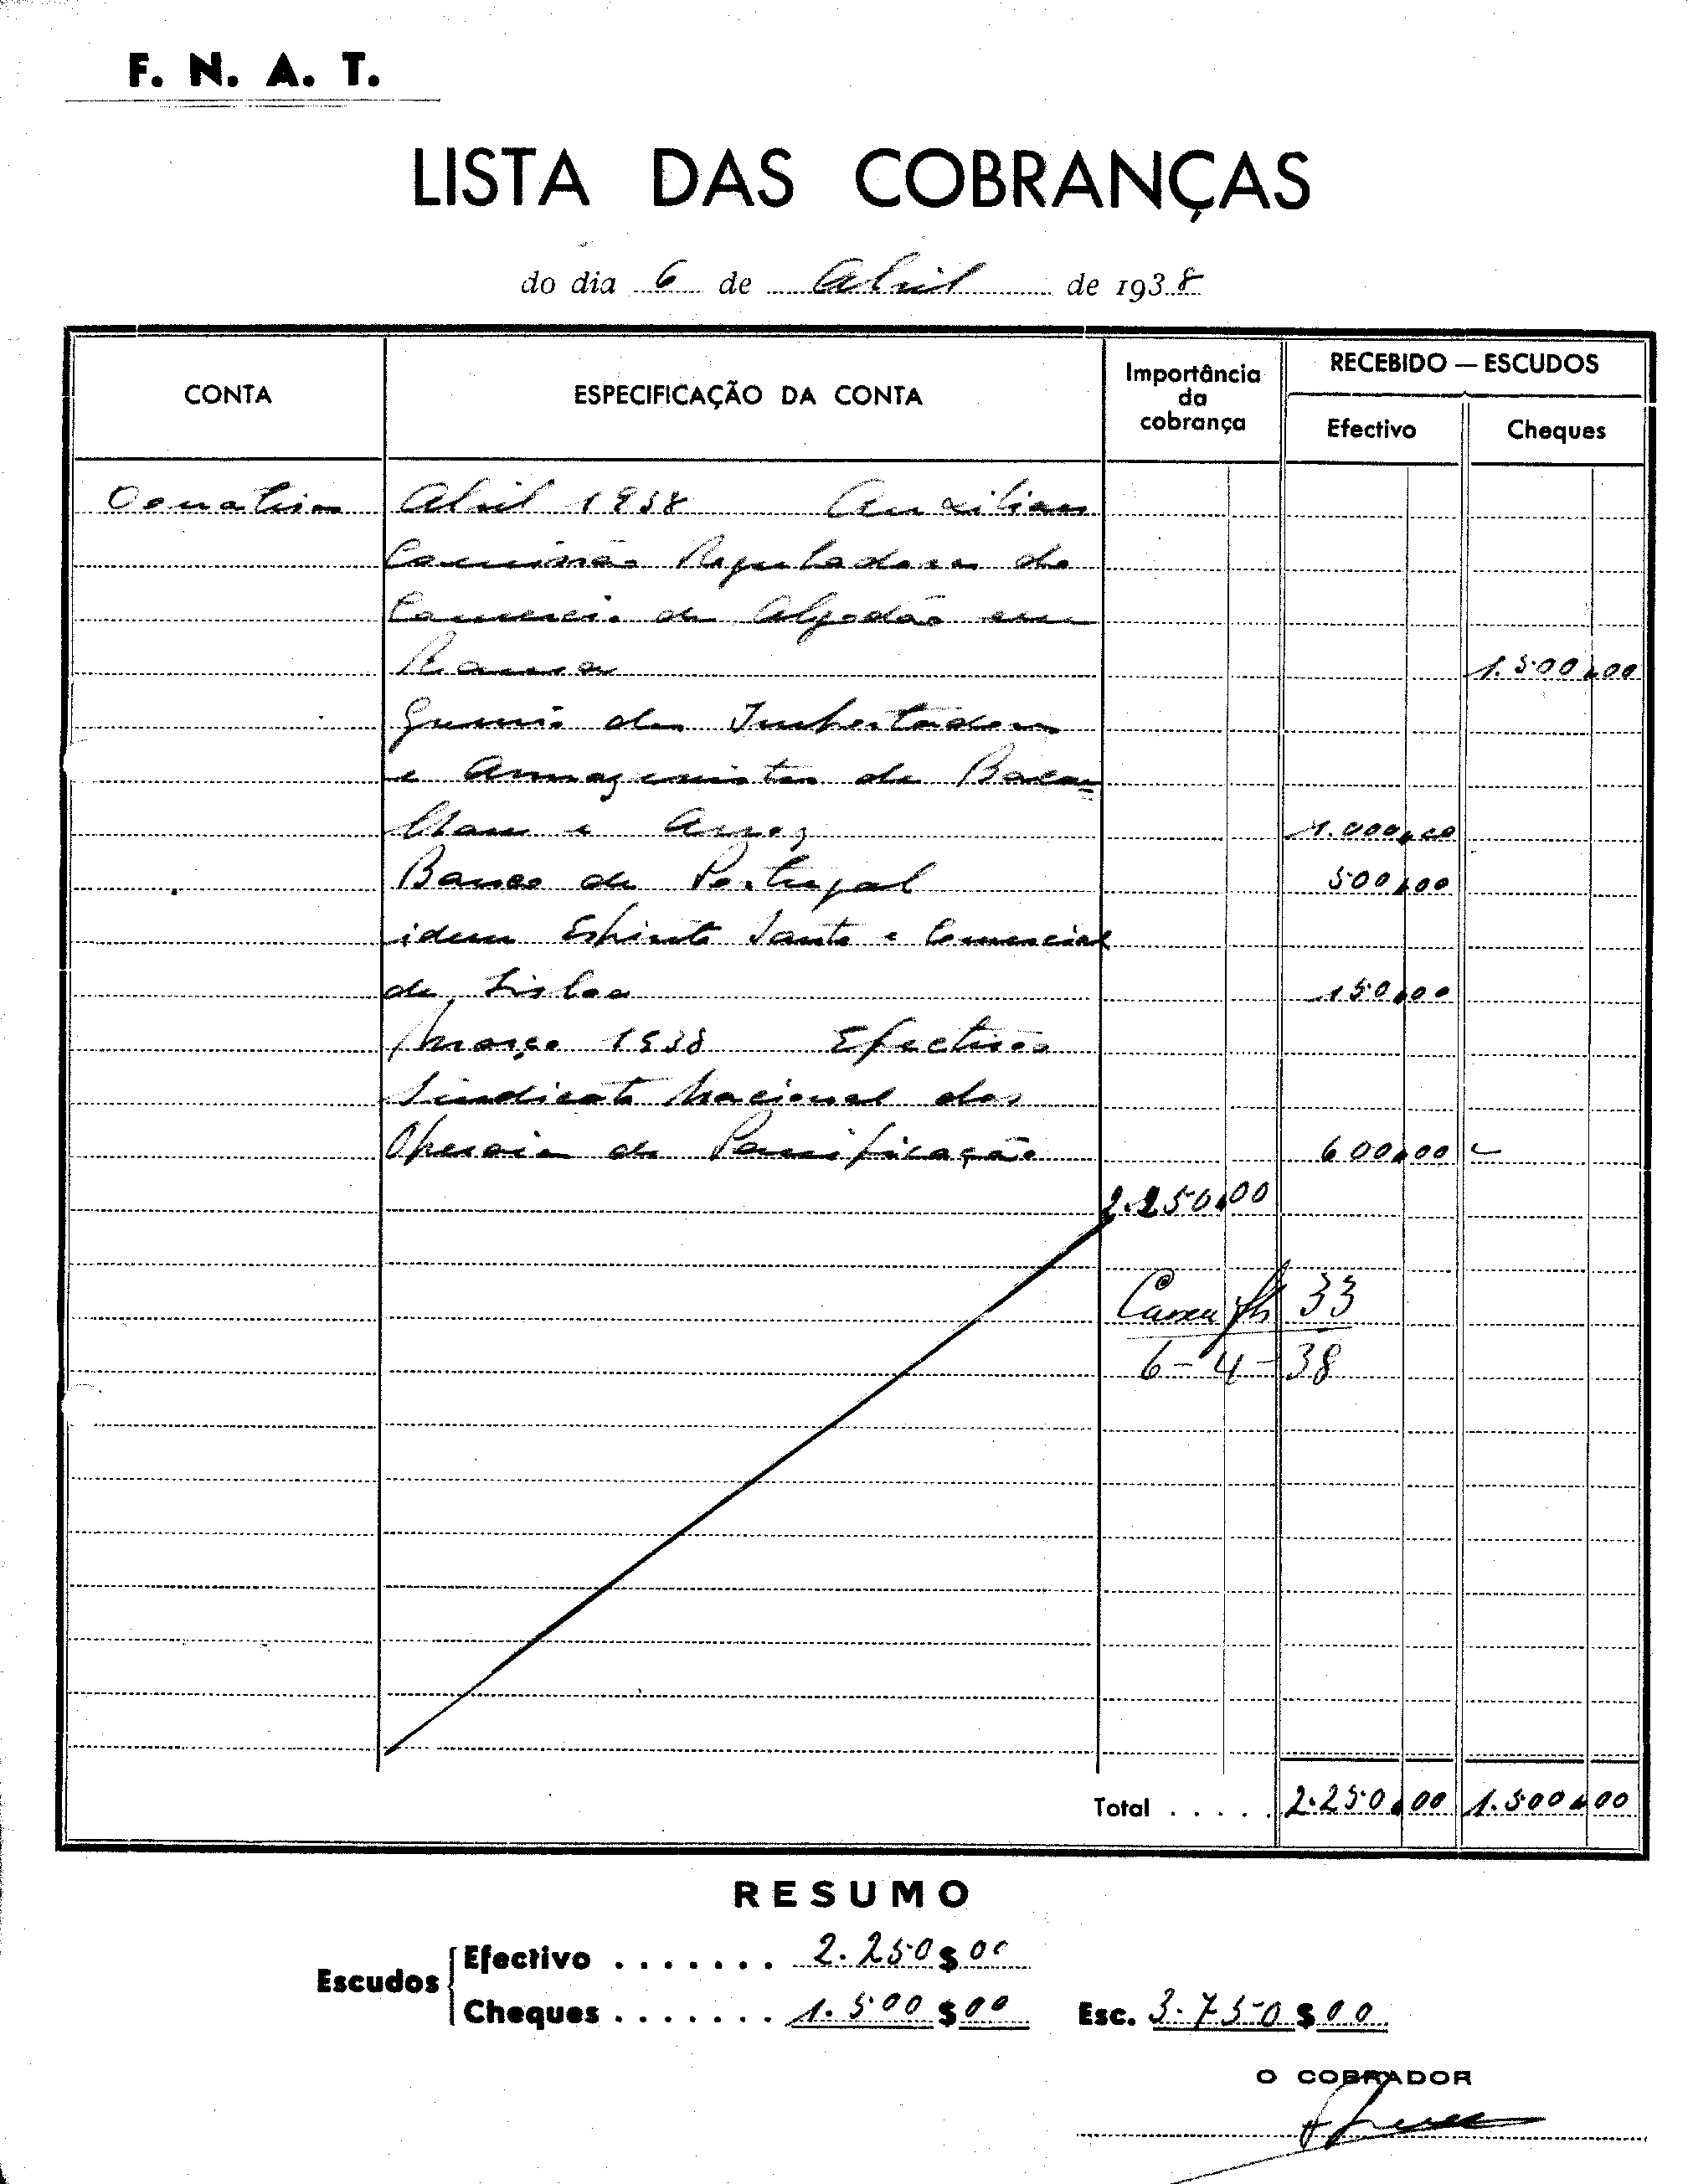 F. N. A. T.
LISTA DAS COBRANÇAS
do dia 6 de Abril de 1938
CONTA ESPECIFICAÇÃO DA CONTA Importância da cobrança RECEBIDO — ESCUDOS
Efectivo Cheques
Donativos Abril 1938 Auxiliares
Comissão Reguladora do
Comercio de Algodão em
Rama 1.500,00
Gremio dos Importadores
e Armazenistas de Baca=
lhau e Arroz 1.000,00
Banco de Portugal 500,00
idem Espirito Santo e Comercial
de Lisboa 150,00
Março 1938 Efectivos
Sindicato Nacional dos
Operarios de Panificação 600,00
2.250,00
Caixa fls 33
6-4-38
Total ..... 2.250,00 1.500,00
RESUMO
Escudos Efectivo ....... 2.250$00
Cheques ....... 1.500$00 Esc. 3.750$00
O COBRADOR